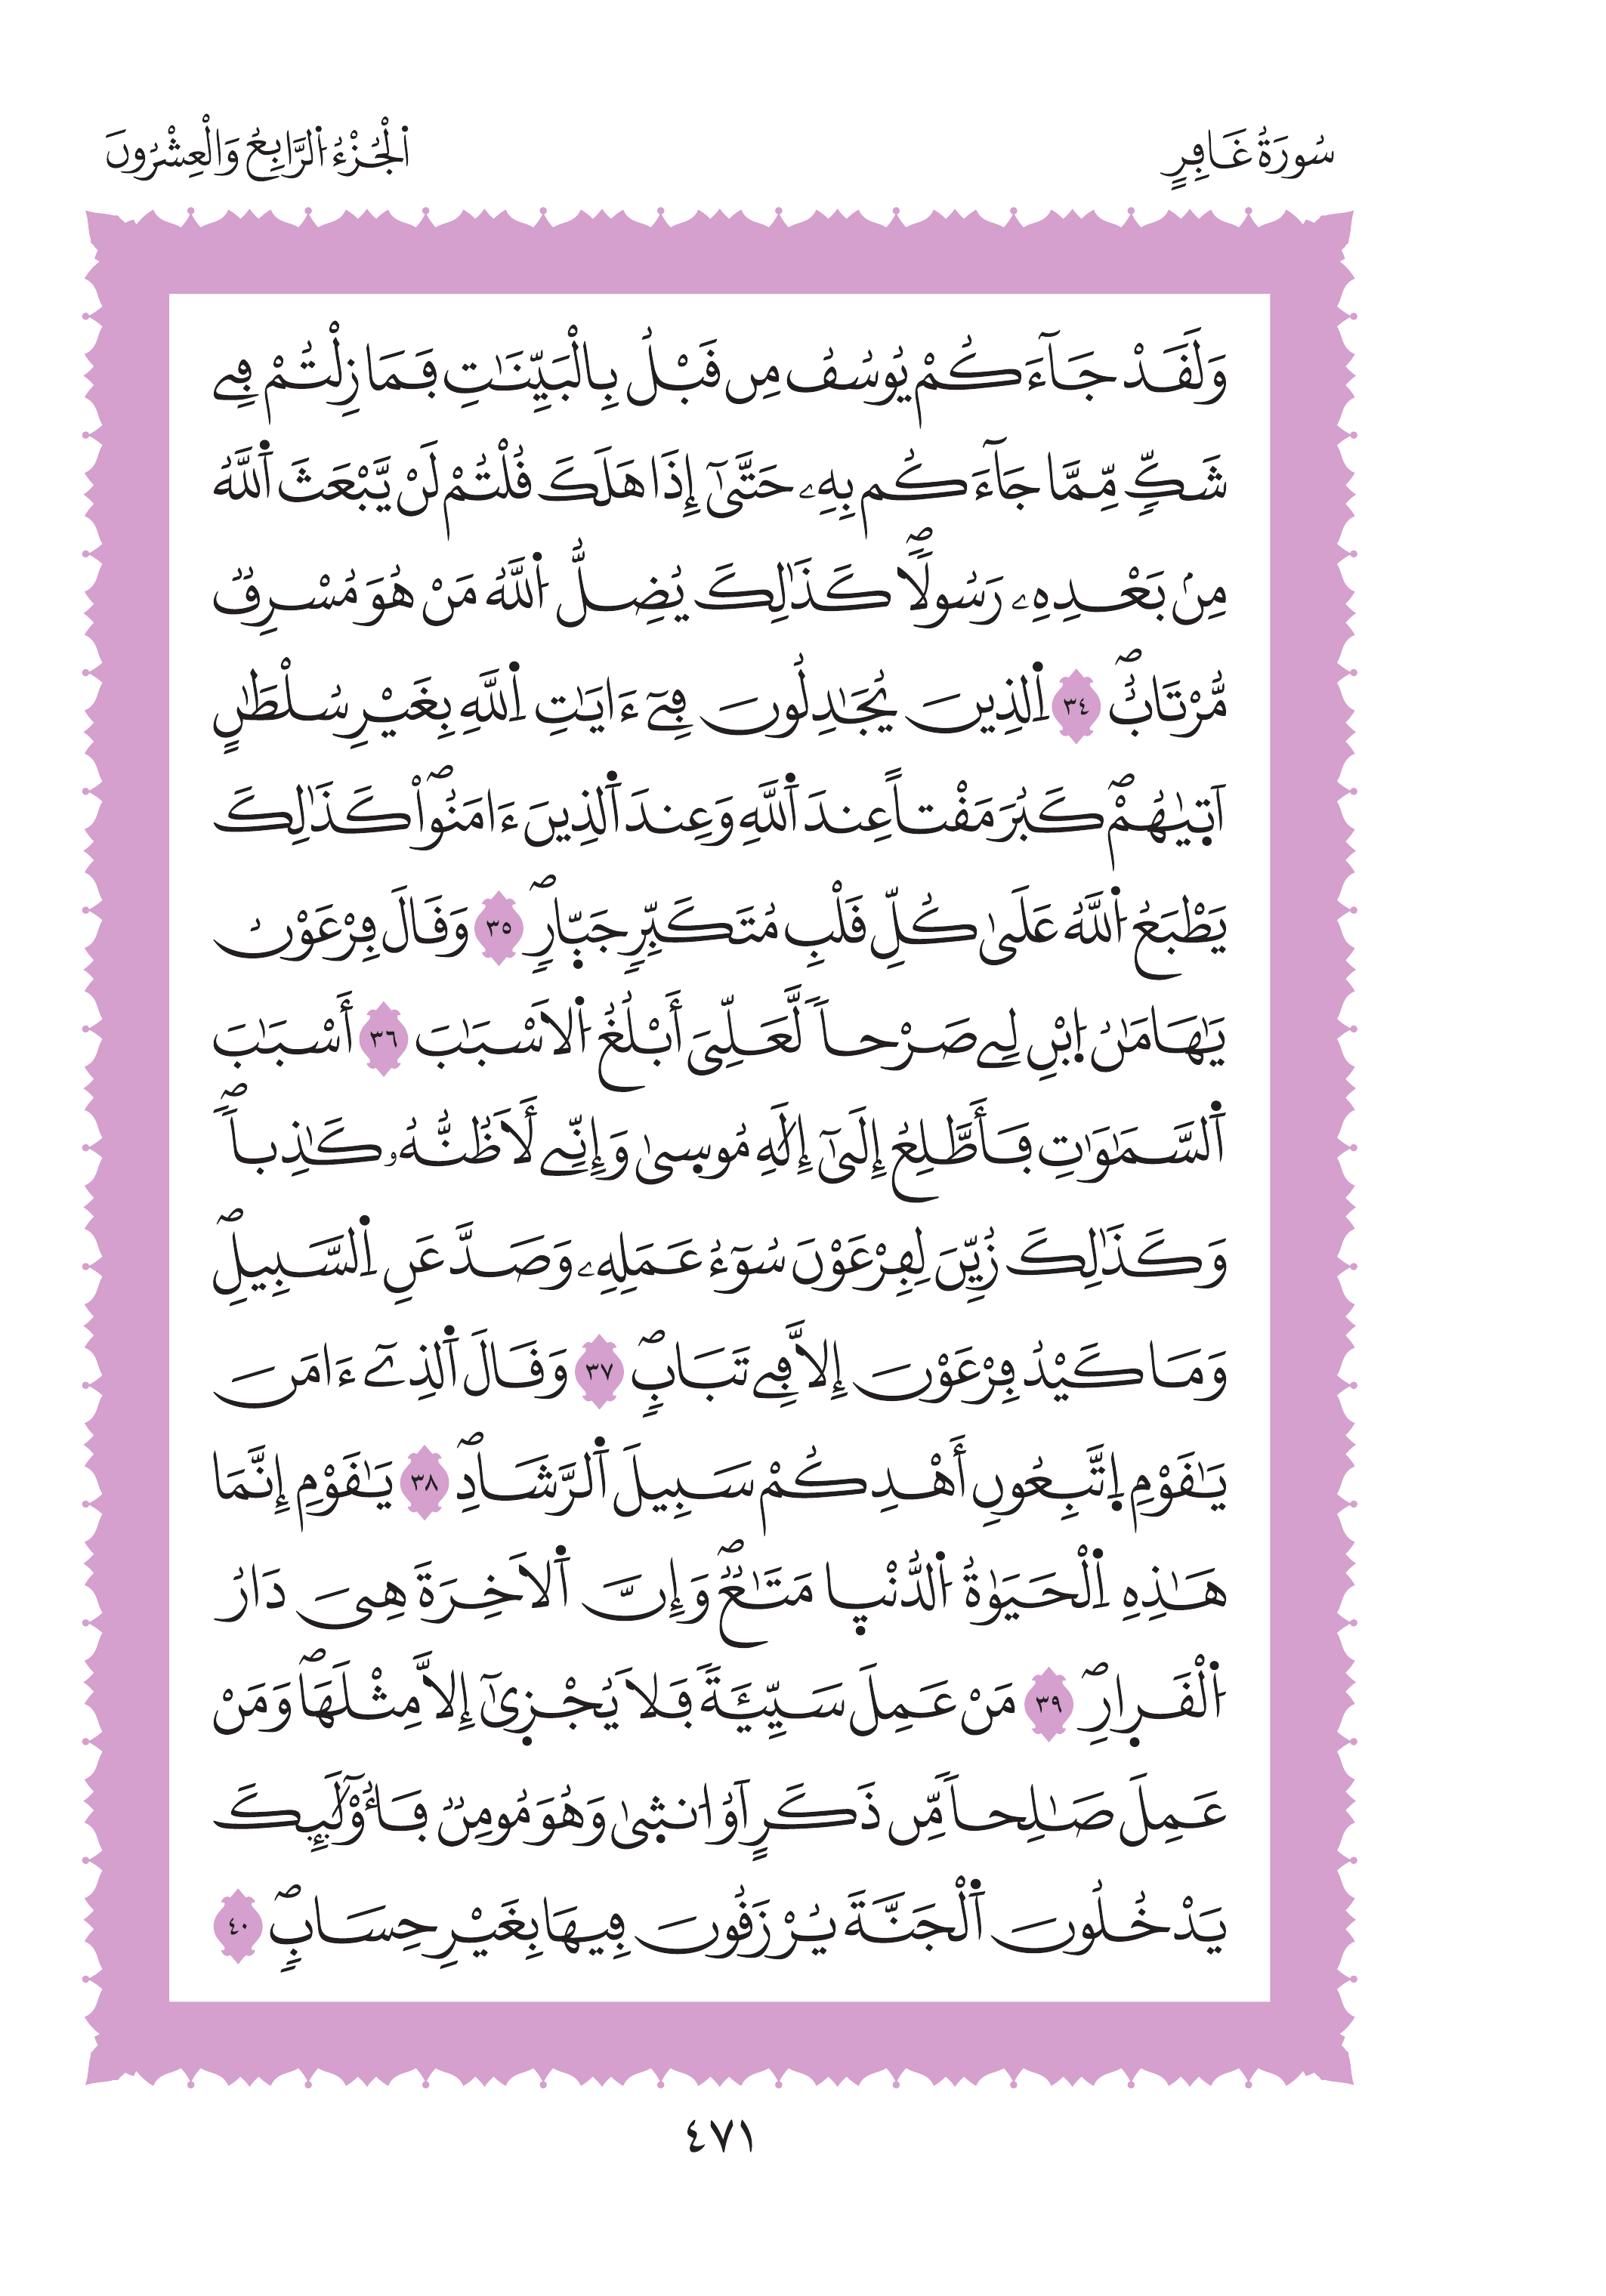 سُورَةُ غَافِرٍ
اَلْجُزْءُ اُلرَّابِعُ وَالْعِشْرُونَ
وَلَقَدْ جَآءَكُمْ يُوسُفُ مِن قَبْلُ بِالْبَيِّنَٰتِ فَمَا زِلْتُمْ فِے
شَكّٖ مِّمَّا جَآءَكُم بِهِۦ حَتَّىٰٓ إِذَا هَلَكَ قُلْتُمْ لَنْ يَّبْعَثَ اَ۬للَّهُ
مِنۢ بَعْدِهِۦ رَسُولاٗۖ كَذَٰلِكَ يُضِلُّ اُ۬للَّهُ مَنْ هُوَ مُسْرِفٞ
مُّرْتَابٌۖ ٣٤ اِ۬لذِينَ يُجَٰدِلُونَ فِےٓ ءَايَٰتِ اِ۬للَّهِ بِغَيْرِ سُلْطَٰنٍ
اَت۪يٰهُمْۖ كَبُرَ مَقْتاً عِندَ اَ۬للَّهِ وَعِندَ اَ۬لذِينَ ءَامَنُواْۖ كَذَٰلِكَ
يَطْبَعُ اُ۬للَّهُ عَلَىٰ كُلِّ قَلْبِ مُتَكَبِّرٖ جَبّ۪ارٖۖ ٣٥ وَقَالَ فِرْعَوْنُ
يَٰهَامَٰنُ اُ۪بْنِ لِے صَرْحاٗ لَّعَلِّيَ أَبْلُغُ اُ۬لَاسْبَٰبَ ٣٦ أَسْبَٰبَ
اَ۬لسَّمَٰوَٰتِ فَأَطَّلِعُ إِلَىٰٓ إِلَٰهِ مُوس۪ىٰ وَإِنِّے لَأَظُنُّهُۥ كَٰذِباٗۖ
وَكَذَٰلِكَ زُيِّنَ لِفِرْعَوْنَ سُوٓءُ عَمَلِهِۦ وَصَدَّ عَنِ اِ۬لسَّبِيلِۖ
وَمَا كَيْدُ فِرْعَوْنَ إِلَّا فِے تَبَابٖۖ ٣٧ وَقَالَ اَ۬لذِےٓ ءَامَنَ
يَٰقَوْمِ اِ۪تَّبِعُونِ أَهْدِكُمْ سَبِيلَ اَ۬لرَّشَادِۖ ٣٨ يَٰقَوْمِ إِنَّمَا
هَٰذِهِ اِ۬لْحَيَوٰةُ اُ۬لدُّنْي۪ا مَتَٰعٞۖ وَإِنَّ اَ۬لَاخِرَةَ هِيَ دَارُ
اُ۬لْقَر۪ارِۖ ٣٩ مَنْ عَمِلَ سَيِّئَةٗ فَلَا يُجْز۪ىٰٓ إِلَّا مِثْلَهَاۖ وَمَنْ
عَمِلَ صَٰلِحاٗ مِّن ذَكَرٍ اَوُ ا۟نث۪ىٰ وَهُوَ مُومِنٞ فَأُوْلَٰٓئِكَ
يَدْخُلُونَ اَ۬لْجَنَّةَ يُرْزَقُونَ فِيهَا بِغَيْرِ حِسَابٖۖ ٤٠
٤٧١